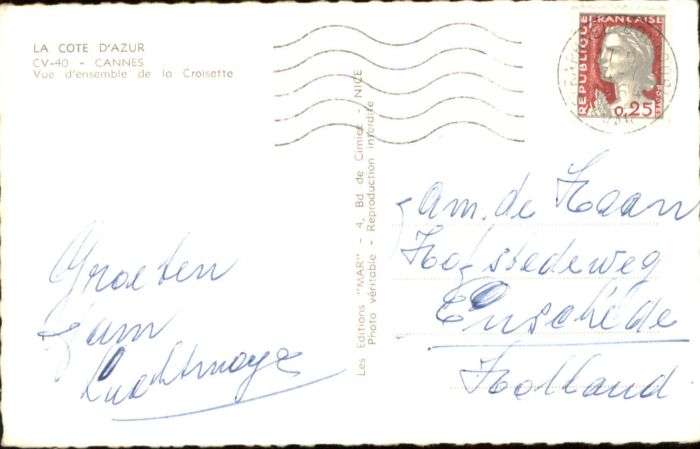 LA COTE D'AZUR
CV-40 - CANNES
Vue d'ensemble de la Croisette
Groeten
fam
Les Editions "MAR" - 4, Bd de Cimiez - NICE
Photo véritable - Reproduction interdite
REPUBLIQUE FRANÇAISE
0,25
POSTES
fam. de Haan
Enschede
Holland